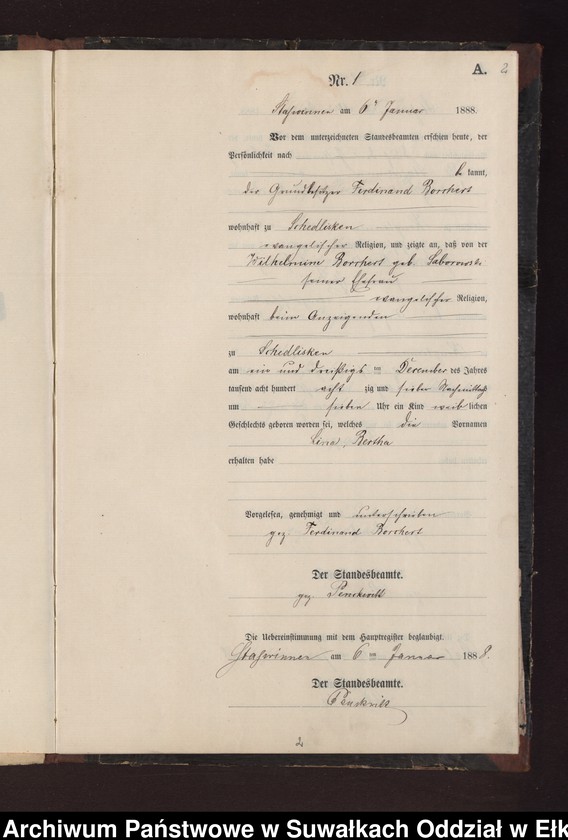 A. 2
Nr. 1
Staswinnen am 6ten Januar 1888.
Vor dem unterzeichneten Standesbeamten erschien heute, der
Persönlichkeit nach
be kannt,
der Grundbesitzer Ferdinand Borchert
wohnhaft zu Schedlisken
evangelischer Religion, und zeigte an, daß von der
Wilhelmine Borchert geb. Saborowski
seiner Ehefrau
evangelischer Religion,
wohnhaft beim Anzeigenden
zu Schedlisken
am ein und dreißigsten December des Jahres
tausend acht hundert acht zig und sieben Nachmittags
um sieben Uhr ein Kind weib lichen
Geschlechts geboren worden sei, welches die Vornamen
Lina, Bertha
erhalten habe
Vorgelesen, genehmigt und unterschrieben
gez. Ferdinand Borchert
Der Standesbeamte.
gez.
Die Uebereinstimmung mit dem Hauptregister beglaubigt.
Staswinnen am 6ten Januar 1888.
Der Standesbeamte.
2
Archiwum Państwowe w Suwałkach Oddział w Ełk